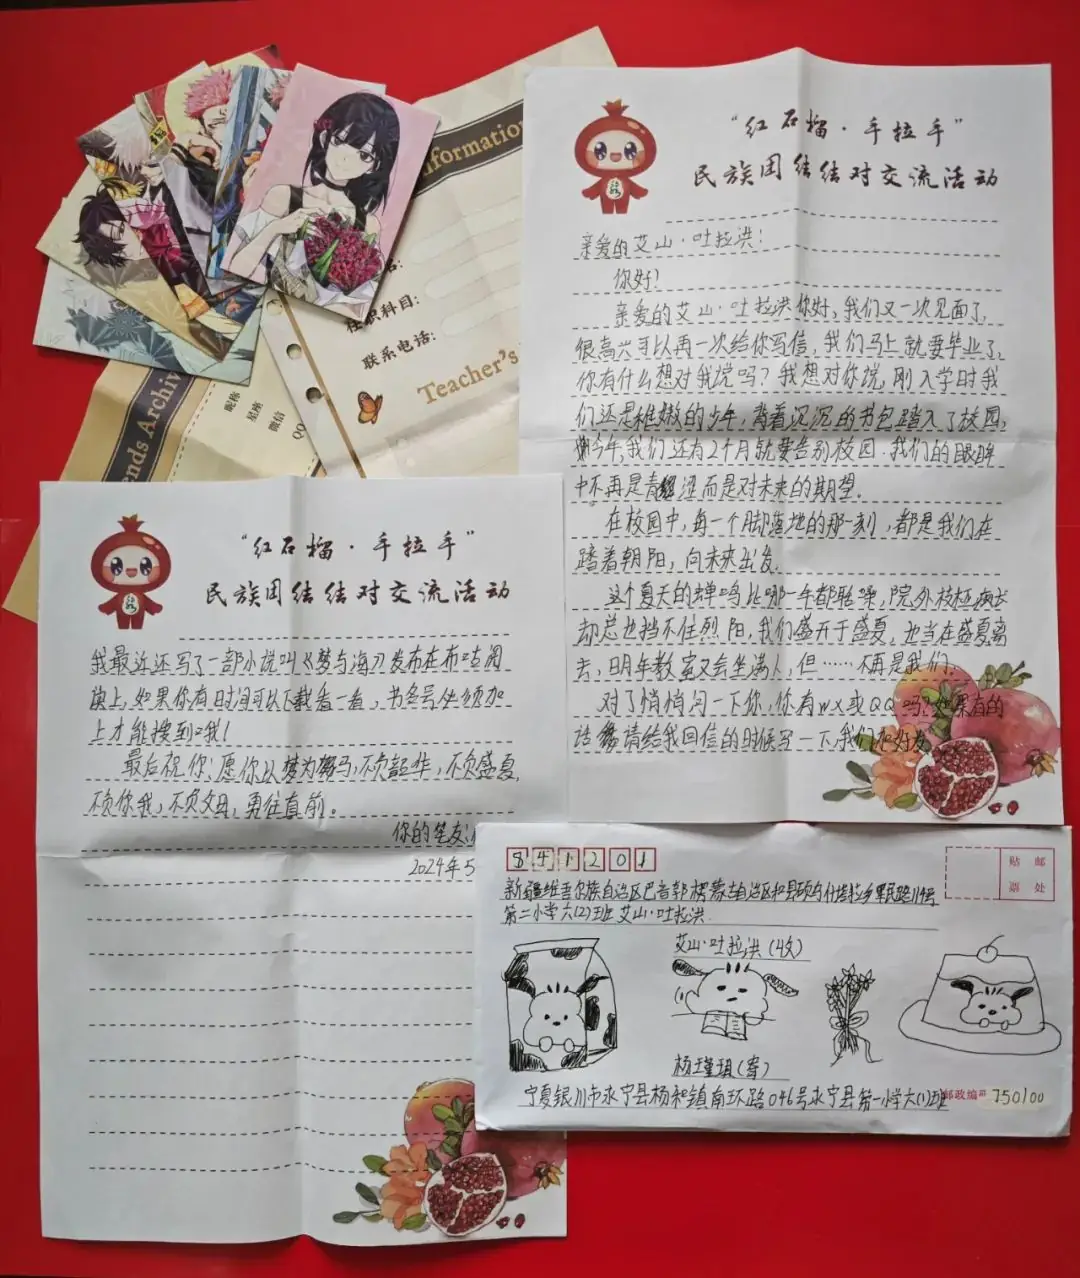 “红石榴·手拉手”
民族团结结对交流活动
亲爱的艾山·吐拉洪！
你好！
亲爱的艾山·吐拉洪你好，我们又一次见面了，
很高兴可以再一次给你写信，我们马上就要毕业了，
你有什么想对我说吗？我想对你说，刚入学时我
们还是稚嫩的少年，背着沉沉的书包踏入了校园，
今年，我们还有2个月就要告别校园．我们的眼眸
中不再是青涩而是对未来的期望。
在校园中，每一个脚落地的那一刻，都是我们在
踏着朝阳，向未来出发．
这个夏天的蝉鸣比哪一年都聒噪，院外枝桠疯长
却总也挡不住烈阳，我们盛开于盛夏，也当在盛夏离
去，明年教室又会坐满人，但……不再是我们．
对了悄悄问一下你，你有wx或QQ吗？如果有的
话 请给我回信的时候写一下，我们加好友
“红石榴·手拉手”
民族团结结对交流活动
我最近还写了一部小说叫《梦与海》发布在布咕阅
读上，如果你有时间可以下载看一看，书名号必须加
上才能搜到哦！
最后祝你：愿你以梦为马，不负韶华，不负盛夏，
不负你我，不负父母，勇往直前。
你的笔友：
2024年5
841201
贴 邮
票 处
新疆维吾尔族自治区巴音郭楞蒙古自治区和县
第二小学六(2)班 艾山·吐拉洪
艾山·吐拉洪（收）
杨瑾琪（寄）
宁夏银川市永宁县杨和镇南环路046号永宁县第一小学六(1)班
邮政编 750100
Information
任职科目：
联系电话：
Teacher's
ends Archiv
昵称
星座
微信
QQ